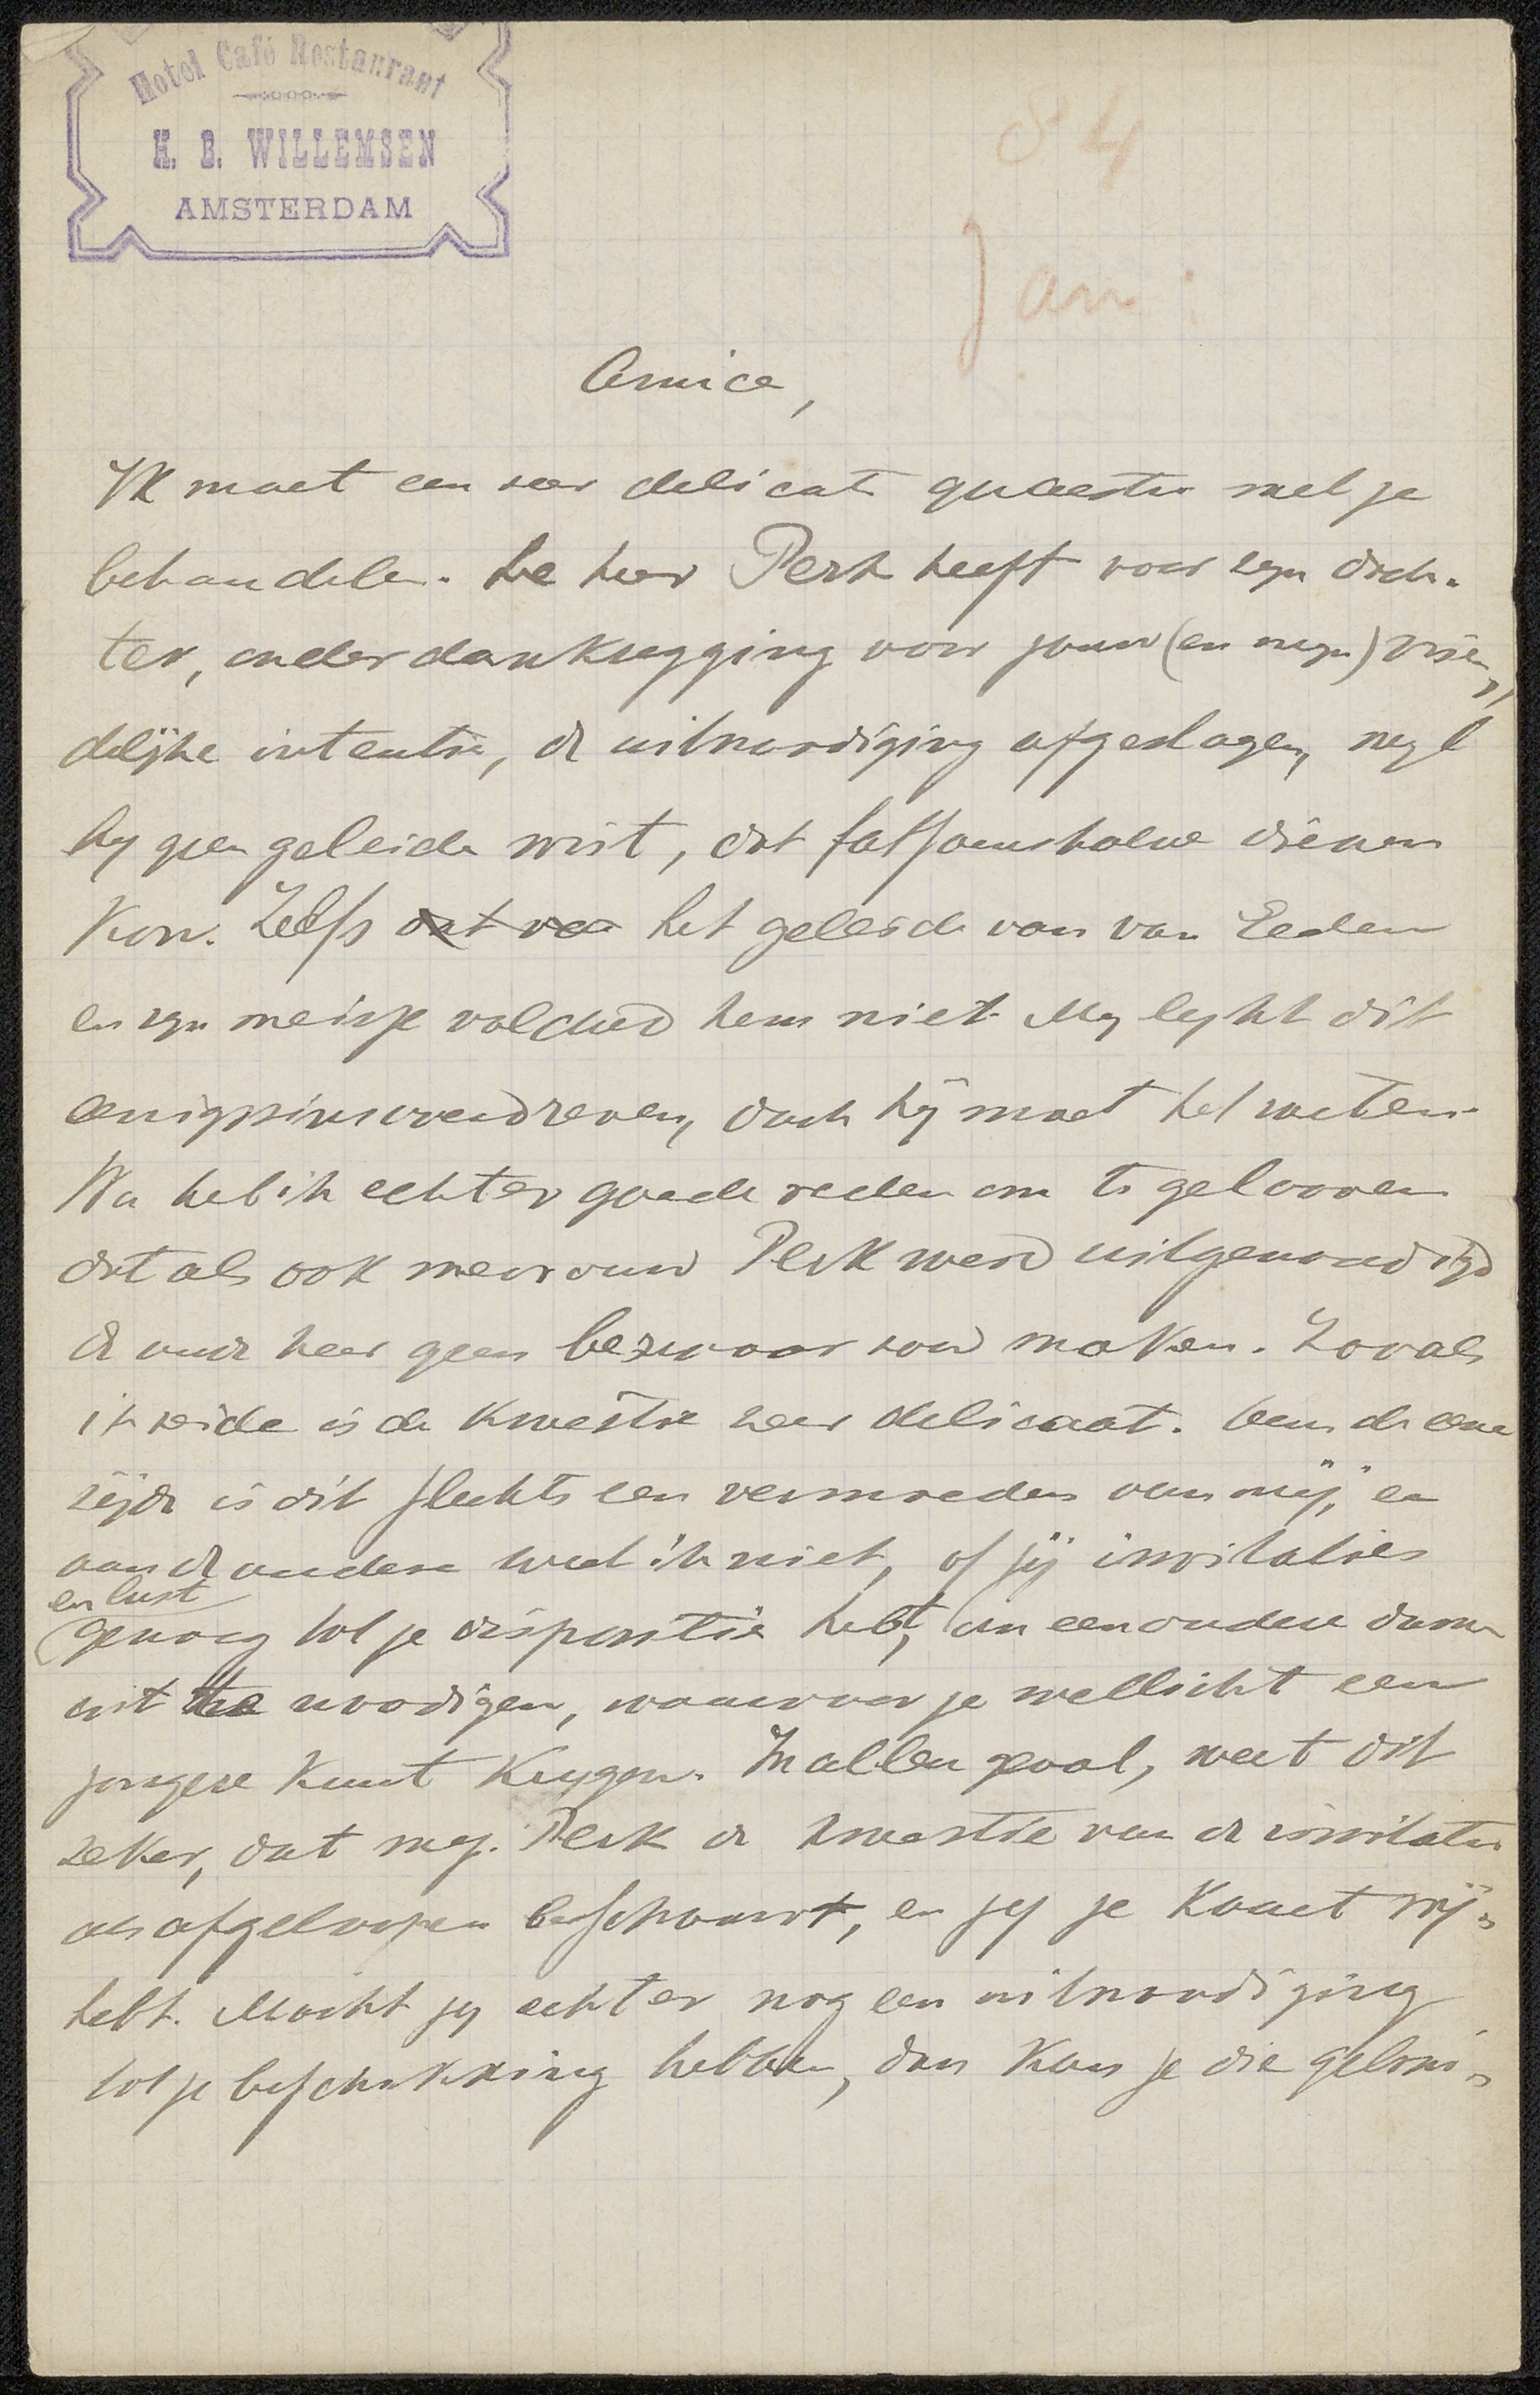 Hotel Café Restaurant
H. B. WILLEMSEN
AMSTERDAM
84
Jan:
Amice,
Ik moet een zeer delicate quaestie met je
behandelen. De heer Perk heeft voor zyn doch-
ter, onder dankzegging voor jouw (en myn) vrien-
delijke intentie, de uitnoodiging afgeslagen, wyl
hy geen geleide wist, dat fatsoenshalve dienen
kon. Zelfs het geleide van van Eeden
en zyn meisje voldeed hem niet. My lykt dit
eenigszins overdreven, doch hij moet het weten.
Nu heb ik echter goede reden om te gelooven
dat als ook mevrouw Perk werd uitgenoodigd
de oude heer geen bezwaar zou maken. Zooals
ik zeide is de kwestie zeer delicaat. Aan de eene
zijde is dit slechts een vermoeden van mij, en
aan de andere weet ik niet, of jij invitaties
en lust
genoeg tot je dispositie hebt, om een oudere dame
uit te noodigen, waarvoor je wellicht een
jongere kunt krygen. In allen geval, weet dit
zeker, dat mej. Perk de kwestie van de invitatie
als afgeloopen beschouwt, en jy je kaart vrij
hebt. Mocht jy echter nog een uitnoodiging
tot je beschikking hebben, dan kan je die gebrui-